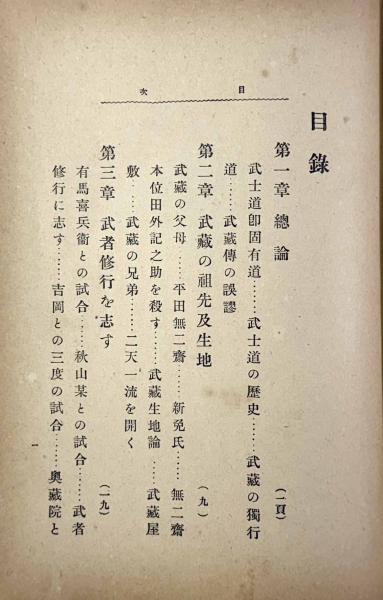 目次
目錄
第一章 總論 (一頁)
武士道卽固有道……武士道の歷史……武藏の獨行
道……武藏傳の誤謬
第二章 武藏の祖先及生地 (九)
武藏の父母……平田無二齋……新免氏……無二齋
本位田外記之助を殺す……武藏生地論……武藏屋
敷……武藏の兄弟……二天一流を開く
第三章 武者修行を志す (一九)
有馬喜兵衞との試合……秋山某との試合……武者
修行に志す……吉岡との三度の試合……奧藏院と
一